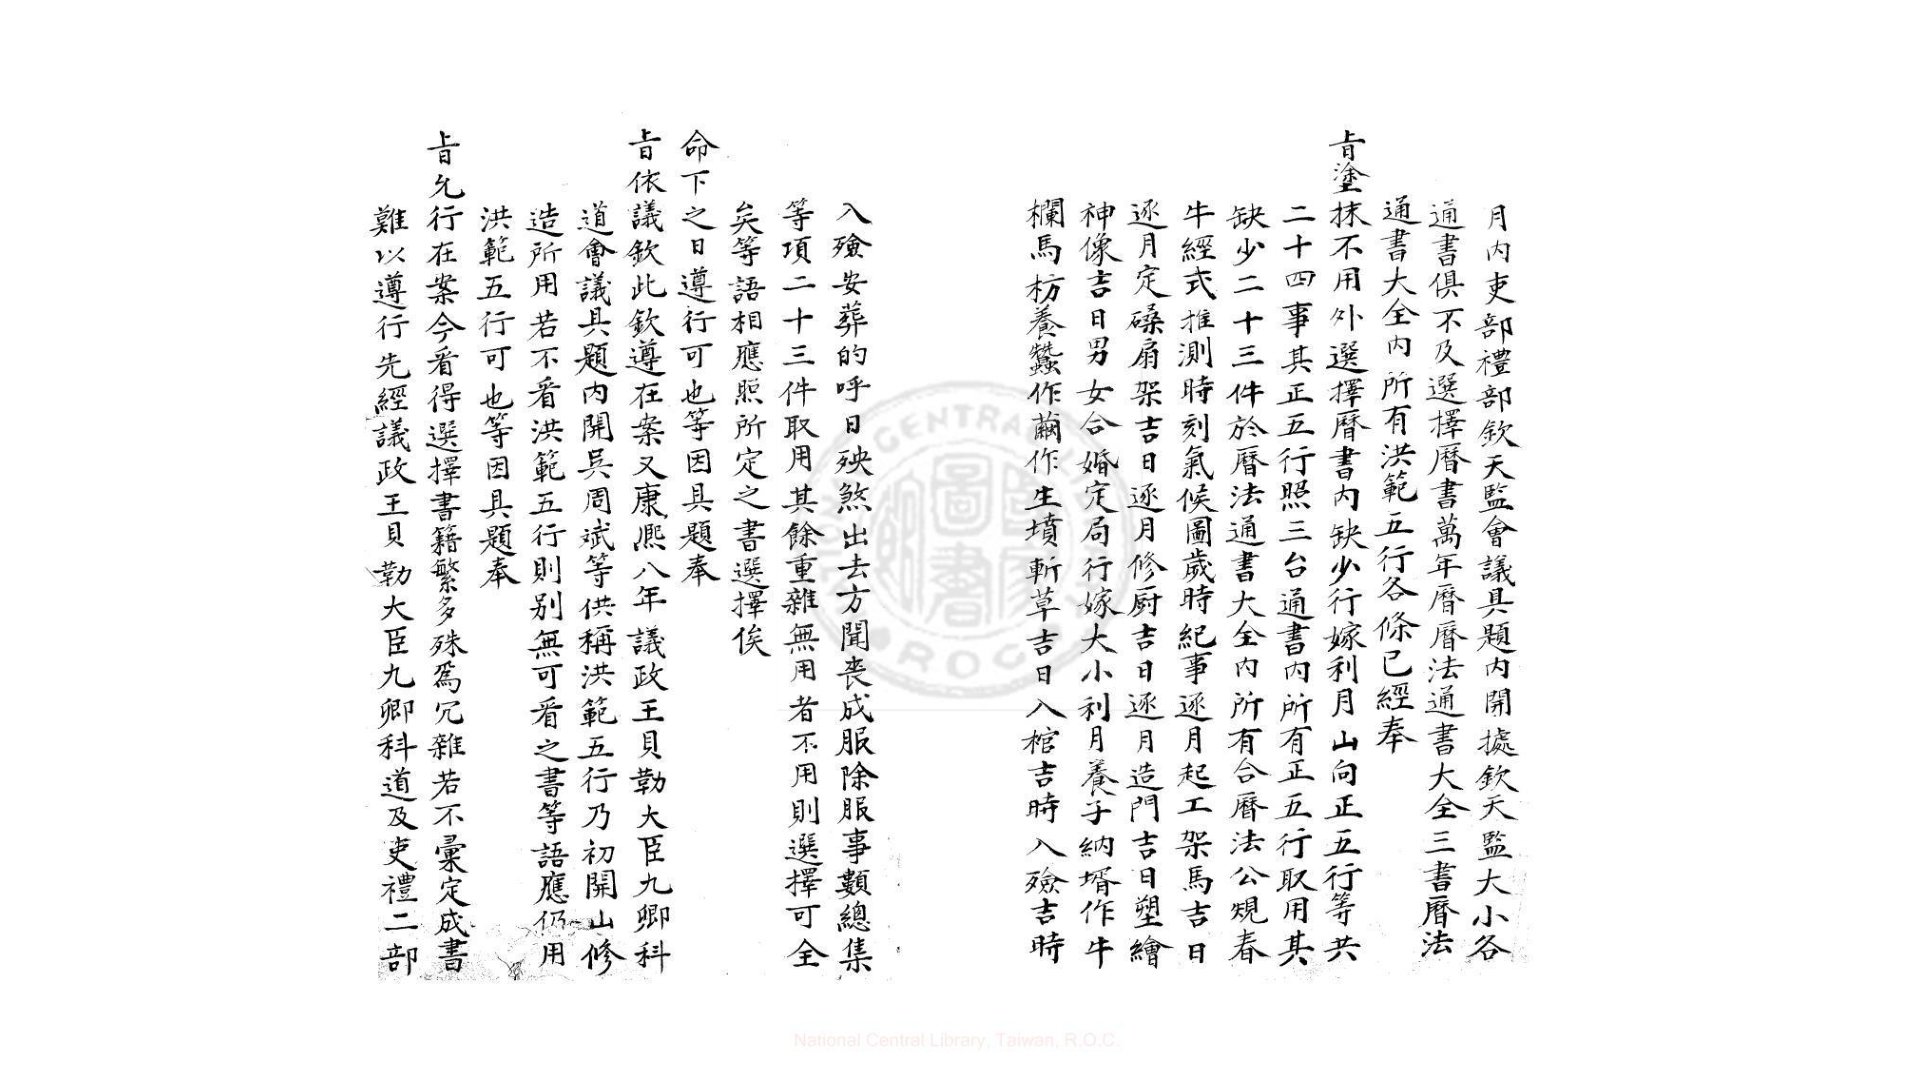 月内吏部禮部欽天監會議具題内開據欽天監大小各
通書俱不及選擇曆書萬年曆曆法通書大全三書曆法
通書大全内所有洪範五行各條已經奉
旨塗抹不用外選擇曆書内缺少行嫁利月山向正五行等共
二十四事其正五行照三台通書内所有正五行取用其
缺少二十三件於曆法通書大全内所有合曆法公規春
牛經式推測時刻氣候圖歲時紀事逐月起工架馬吉日
逐月定磉扇架吉日逐月修厨吉日逐月造門吉日塑繪
神像吉日男女合婚定局行嫁大小利月養子納壻作牛
欄馬枋養蠶作繭作生墳斬草吉日入棺吉時入殮吉時
入殮安葬的呼日殃煞出去方聞喪成服除服事類總集
等項二十三件取用其餘重雜無用者不用則選擇可全
矣等語相應照所定之書選擇俟
命下之日遵行可也等因具題奉
旨依議欽此欽遵在案又康熙八年議政王貝勒大臣九卿科
道會議具題内開吳周斌等供稱洪範五行乃初開山修
造所用若不看洪範五行則别無可看之書等語應仍用
洪範五行可也等因具題奉
旨允行在案今看得選擇書籍繁多殊爲冗雜若不彙定成書
難以遵行先經議政王貝勒大臣九卿科道及吏禮二部
National Central Library, Taiwan, R.O.C.